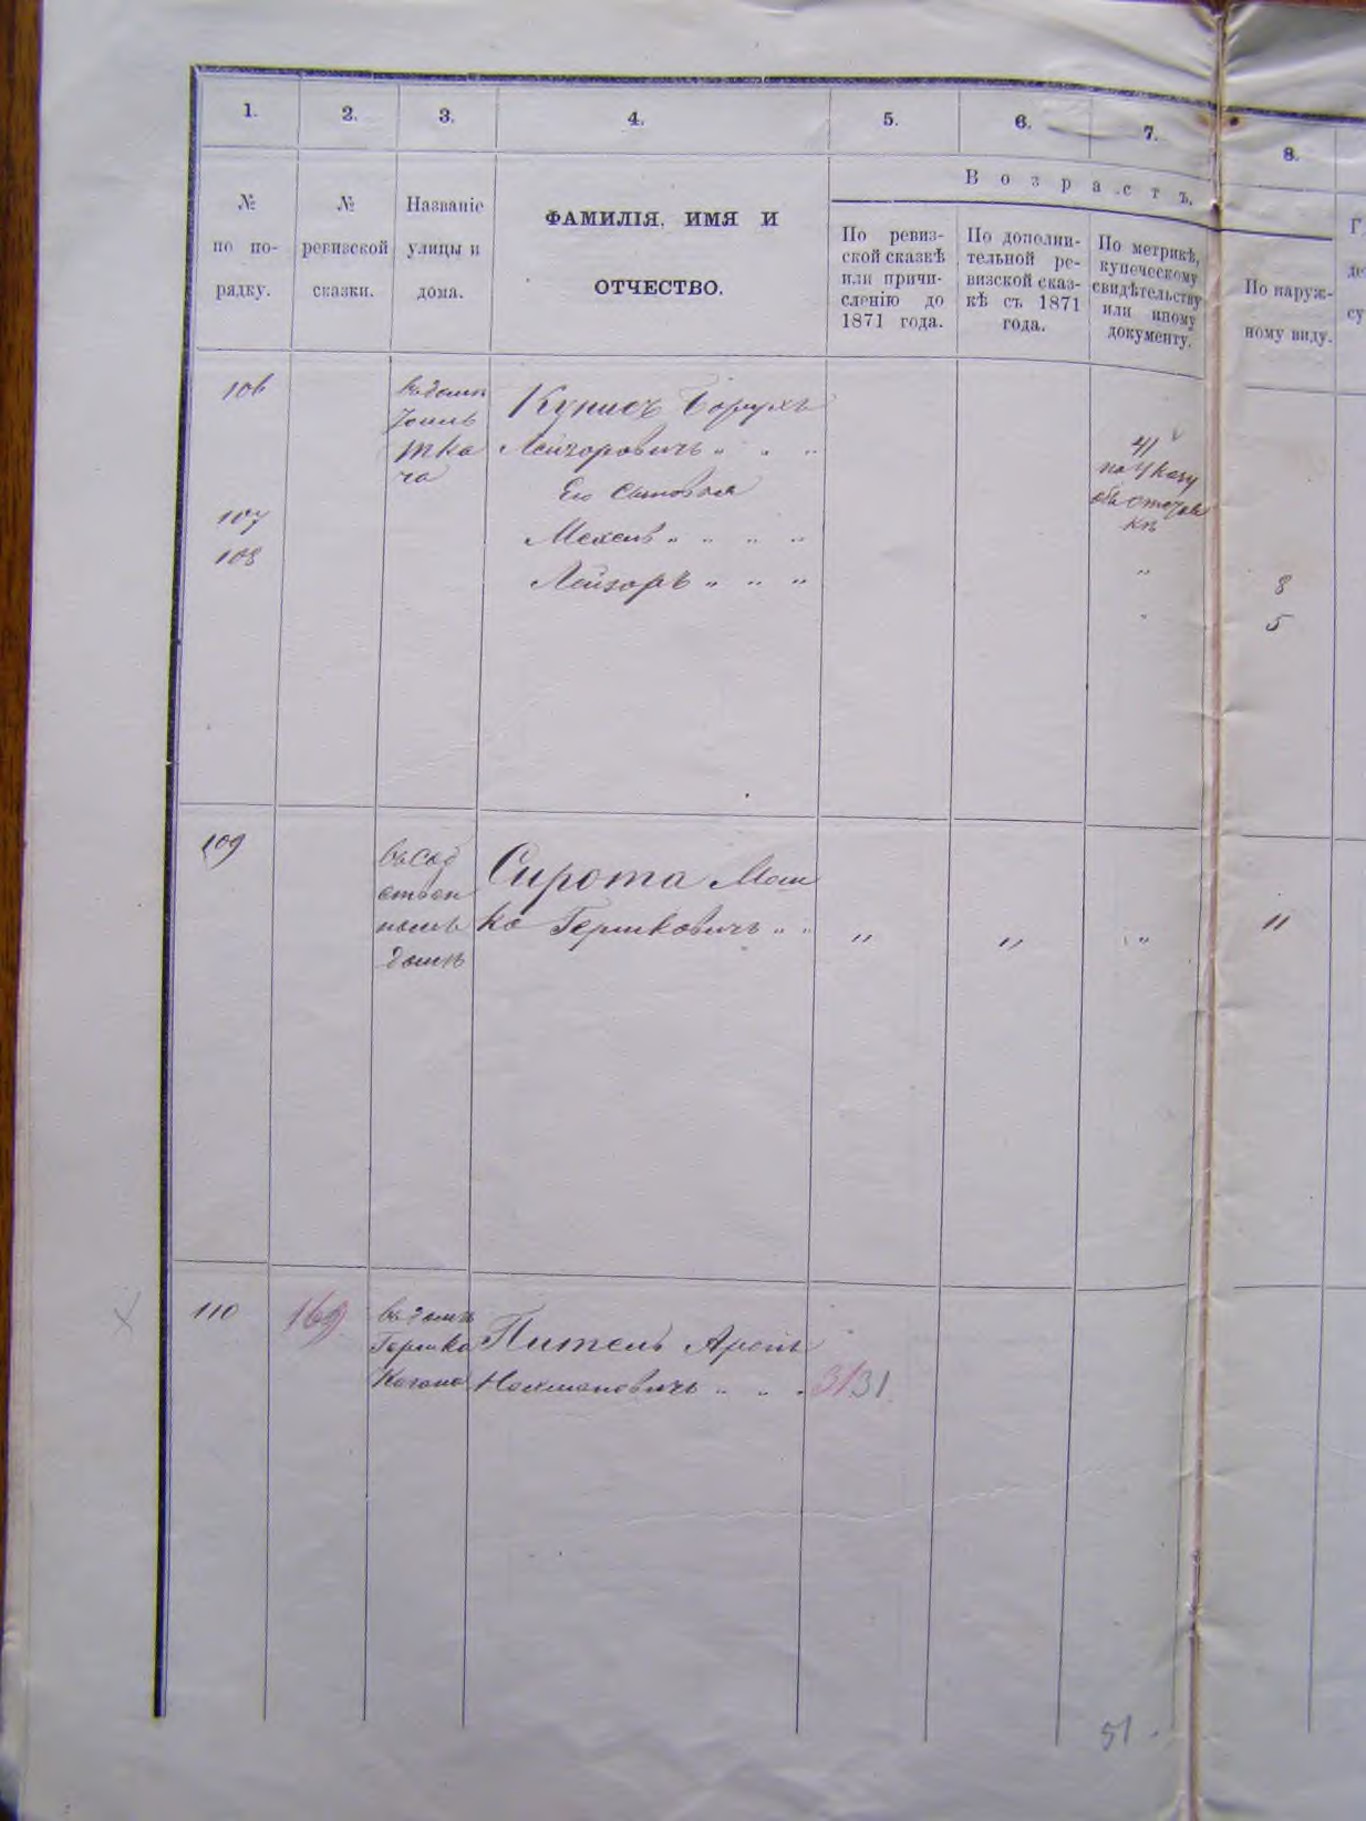 1. 2. 3. 4. 5. 6. 7. 8.
Возрастъ.
№ по по- рядку.
№ ревизской сказки.
Названіе улицы и дома.
ФАМИЛІЯ, ИМЯ И
ОТЧЕСТВО.
По ревиз-
ской сказкѣ
или причи-
сленію до
1871 года.
По дополни-
тельной ре-
визской сказ-
кѣ съ 1871
года.
По метрикѣ,
купеческому
свидѣтельству
или иному
документу.
По наруж-
ному виду.
106
въ домѣ
тка
ча
Куписъ Борухъ
Лейзоровичъ " " "
41
по указу
объ отставкѣ
Его сыновья
107
Мехель " " " "
" 8
108
Лейзоръ " " "
5
109
въ соб
ствен
номъ
домѣ
Сирота Мош
ко Гершковичъ " "
" " " 11
110
169
въ домѣ
Гершка
Когана
Питель Аронъ
Нахмановичъ " " "
31 31
51